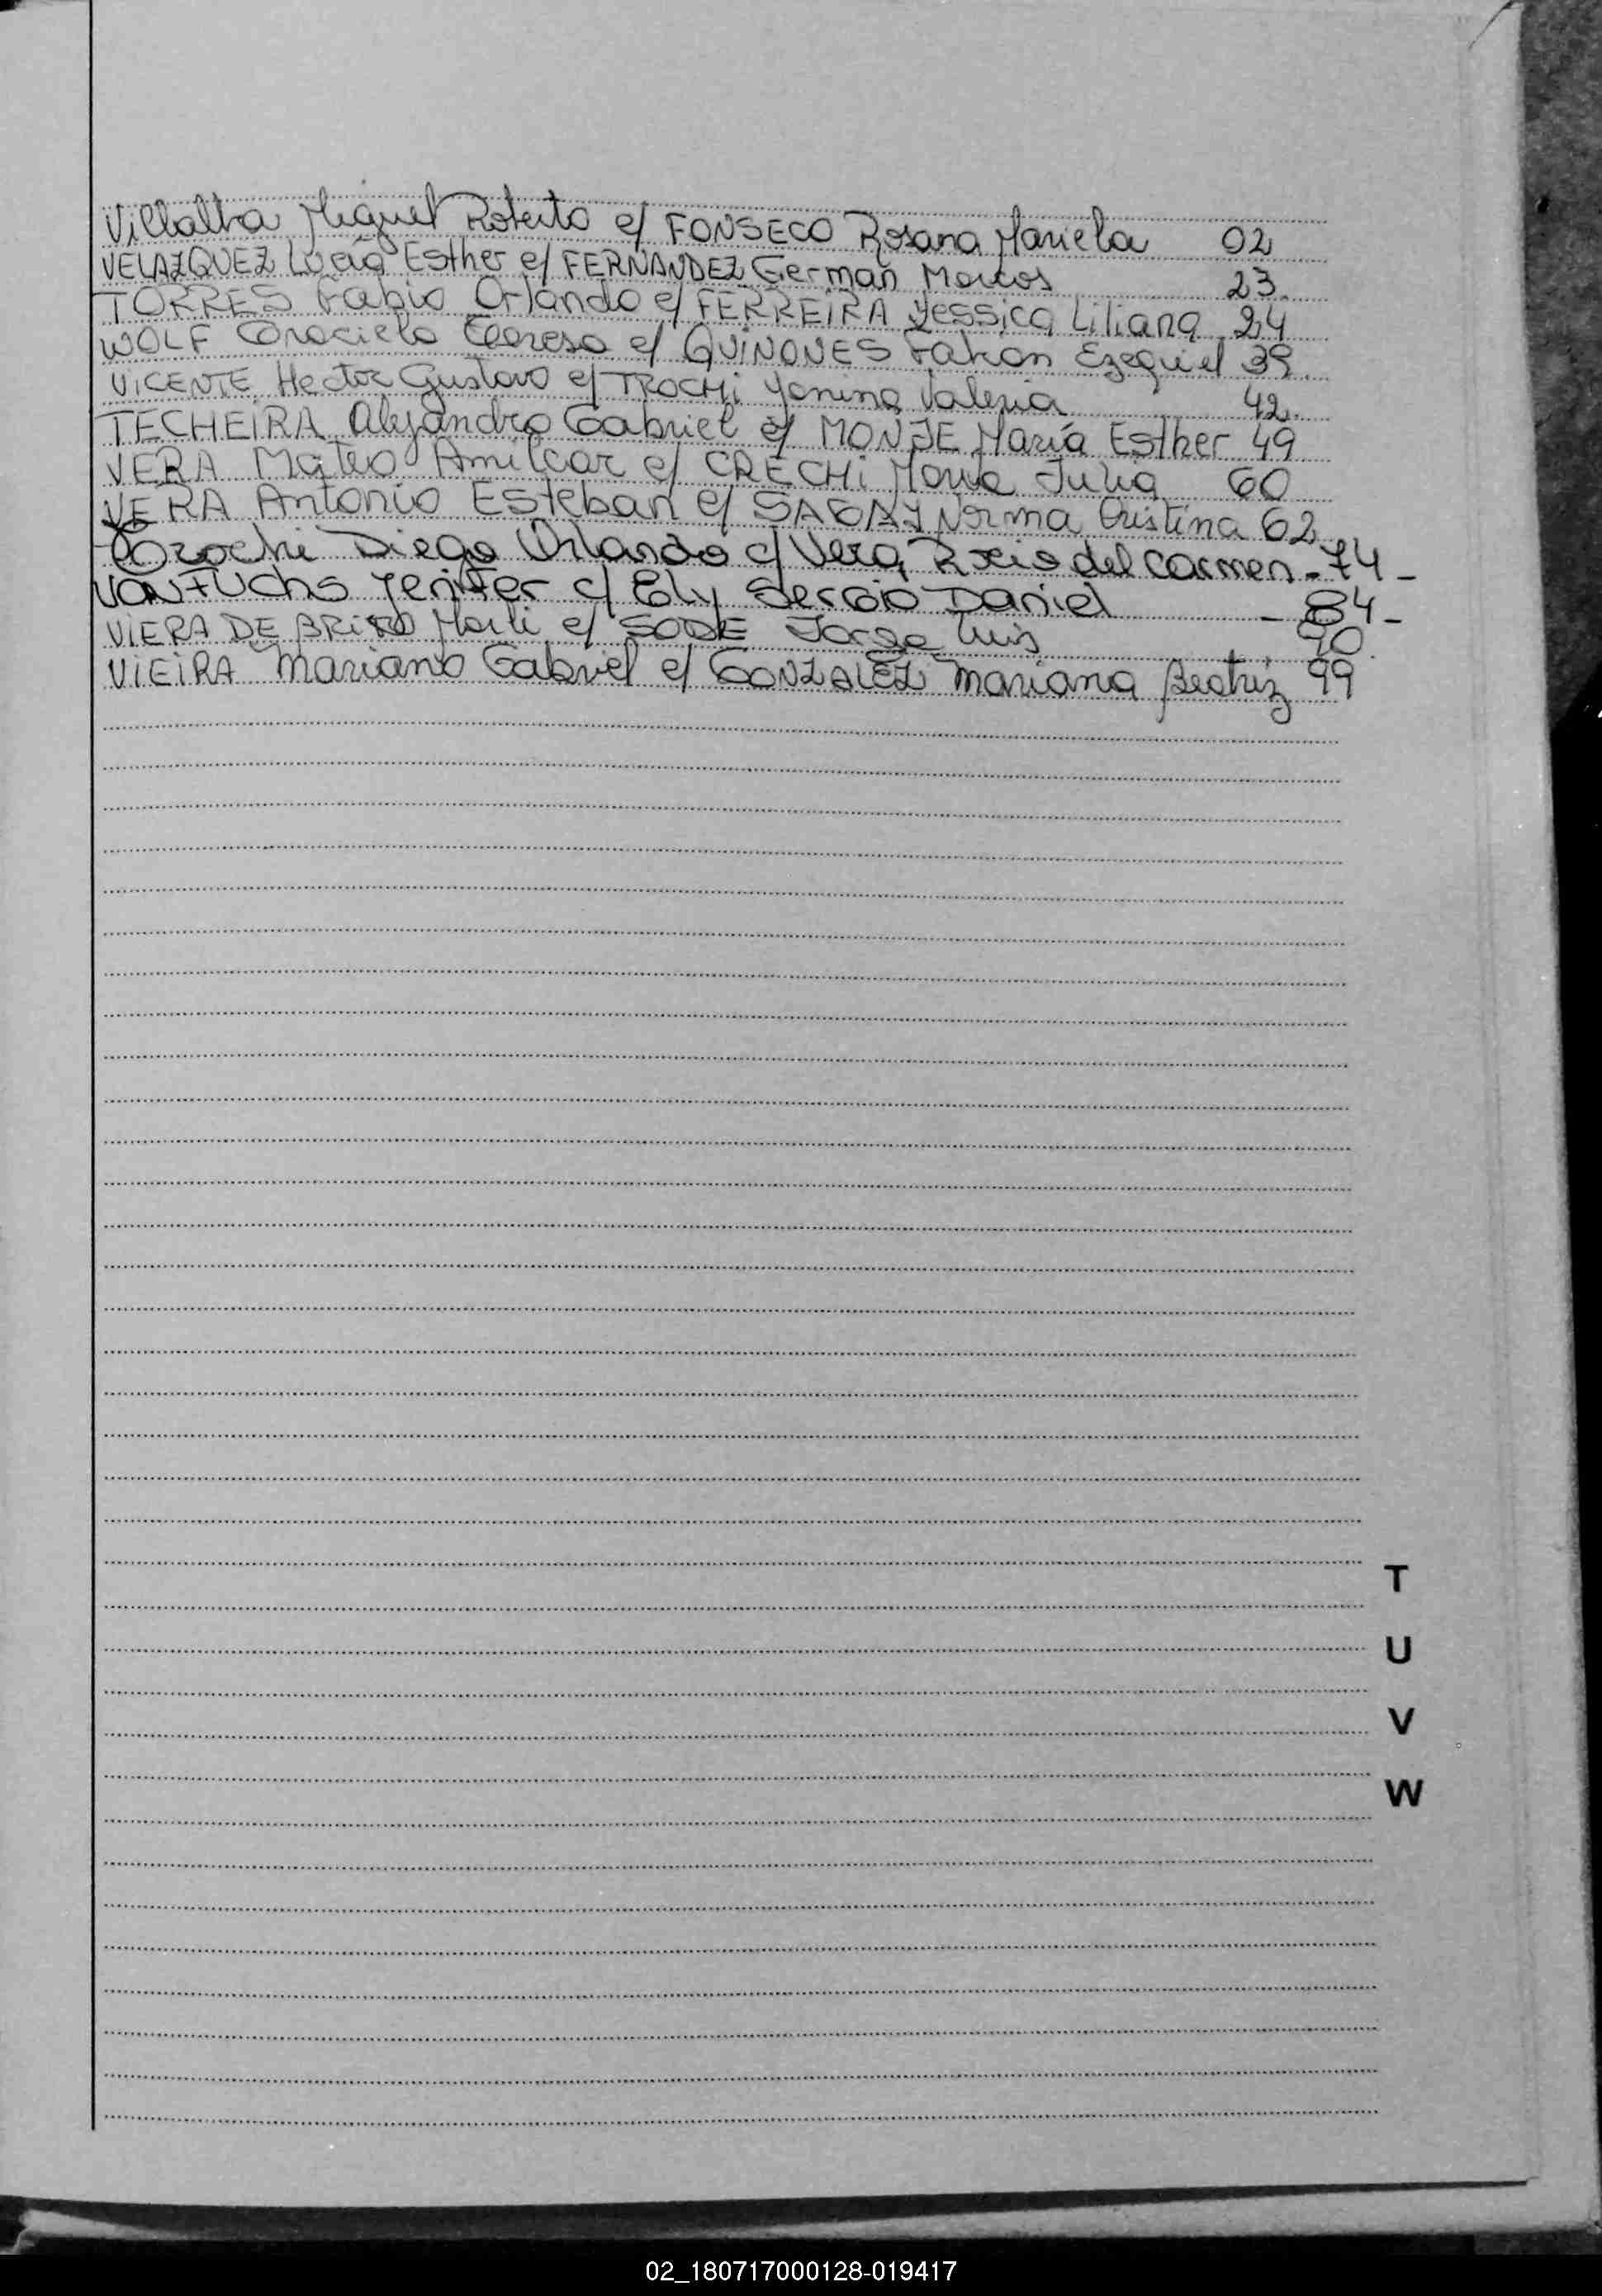 Villalba Miguel Roberto c/ FONSECO Rosana Mariela 02
VELAZQUEZ Lucía Esther c/ FERNANDEZ German Marcos 23.
TORRES Fabio Orlando c/ FERREIRA Yessica Liliana 24
WOLF Graciela Teresa c/ QUINONES Fabian Ezequiel 39.
VICENTE Hector Gustavo c/ TROCHI Yanina Valeria 42.
TECHEIRA Alejandro Gabriel c/ MONJE María Esther 49
VERA Mateo Amilcar c/ CRECHI María Julia 60
VERA Antonio Esteban c/ Norma Cristina 62
Trochi Diego Orlando c/ Vera, Rocio del Carmen - 74 -
Vonfuchs Jenifer c/ Ely Sergio Daniel - 84 -
VIERA DE c/ SODE Jorge Luis 90.
VIEIRA Mariano Gabriel c/ GONZALEZ Mariana Beatriz 99
T
U
V
W
02_180717000128-019417